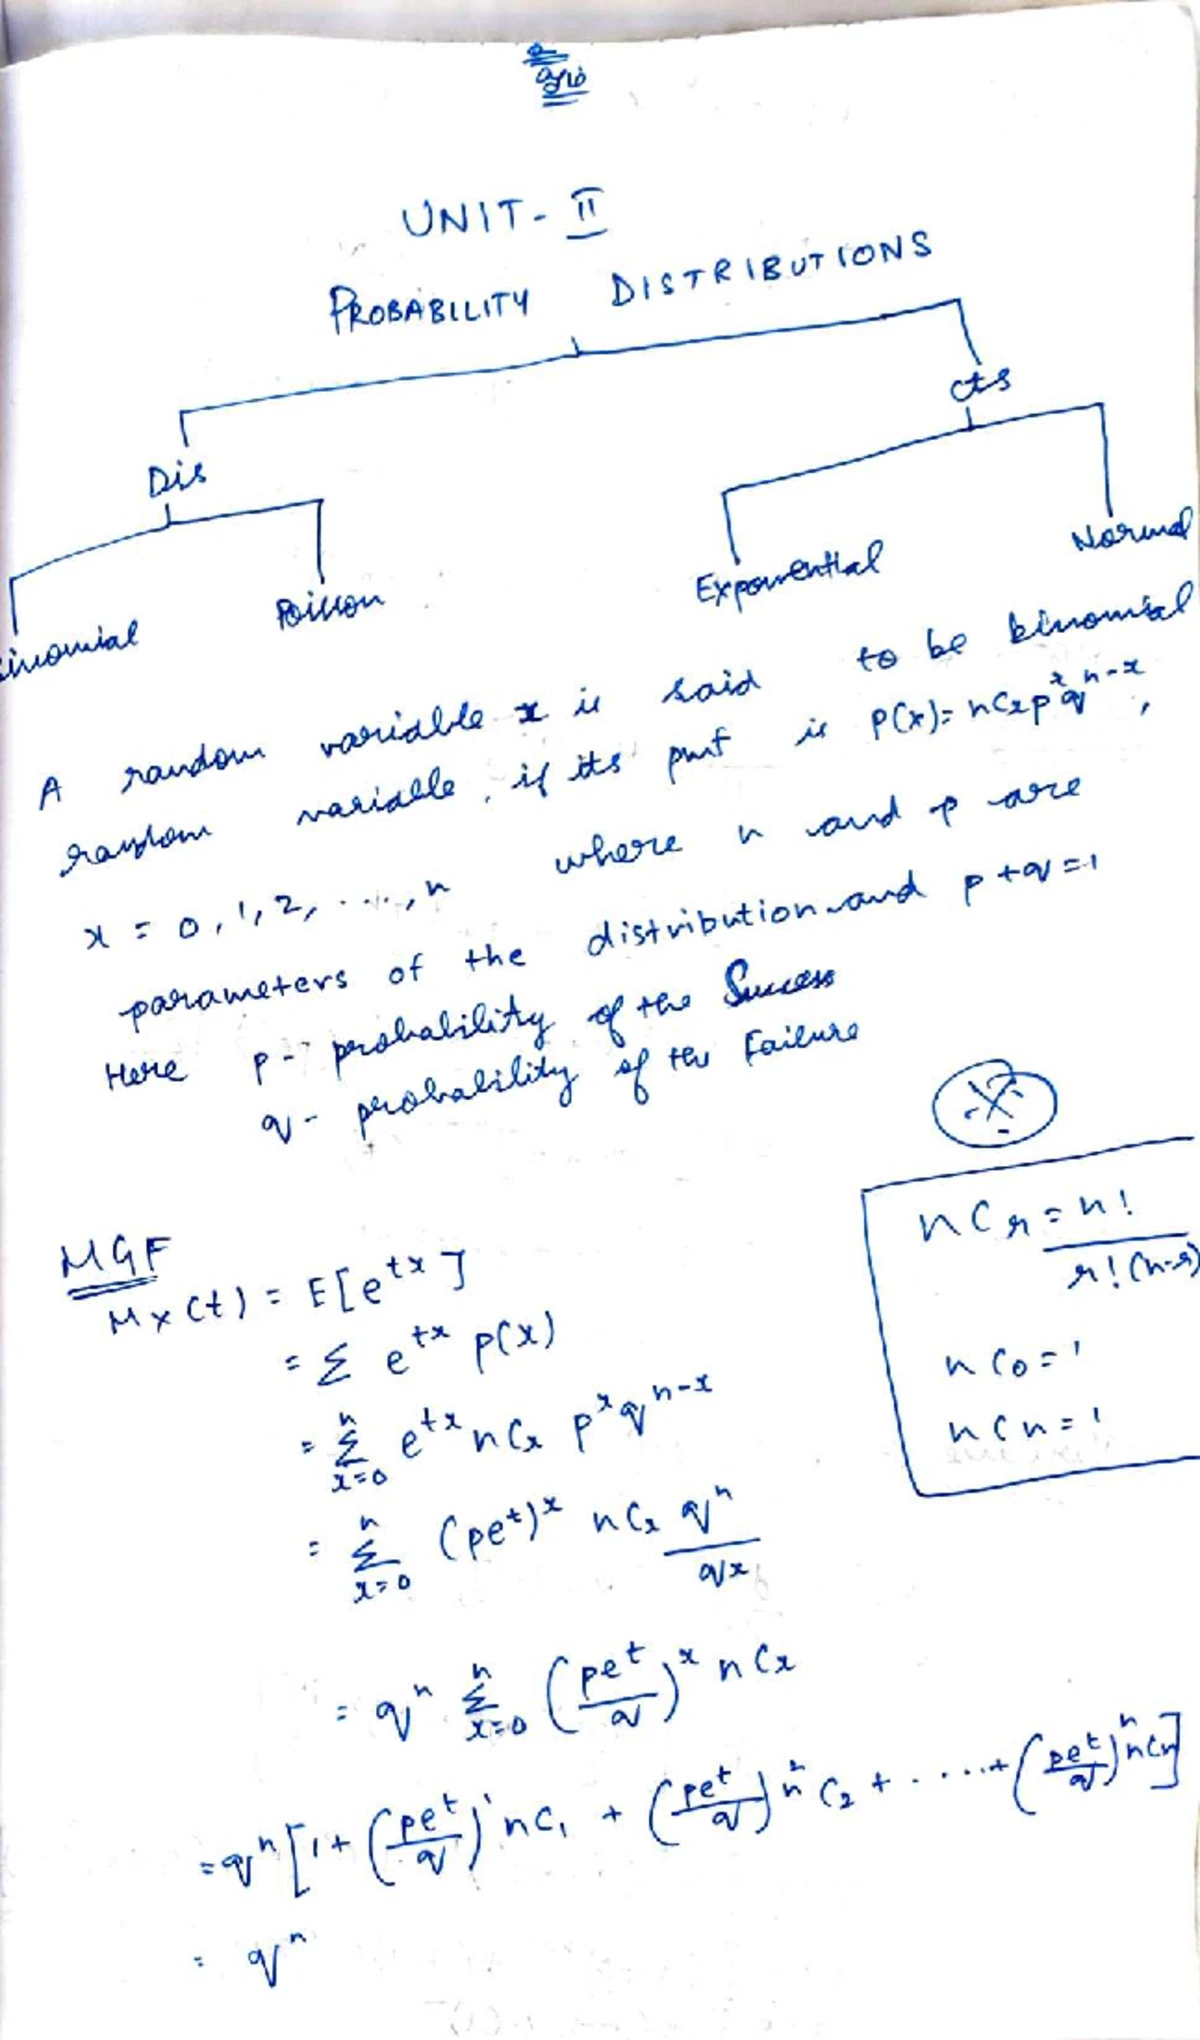 UNIT - II
PROBABILITY DISTRIBUTIONS
cts
Dis
Normal
Exponential
Poisson
inomial
A random variable x is said to be binomial
random variable, if its pmf is P(x) = nCx p^x q^n-x,
x = 0, 1, 2, ...., n where n and p are
parameters of the distribution and p + q = 1
Here p - probability of the Success
q - probability of the Failure
nCr = n! / r! (n-r)
nC0 = 1
nCn = 1
MGF
Mx(t) = E[e^tx]
= Σ e^tx p(x)
= Σ_{x=0}^{n} e^tx nCx p^x q^n-x
= Σ_{x=0}^{n} (pe^t)^x nCx q^n / q^x
= q^n Σ_{x=0}^{n} (pe^t / q)^x nCx
= q^n [1 + (pe^t / q)^1 nC1 + (pe^t / q)^2 nC2 + ..... + (pe^t / q)^n nCn]
= q^n